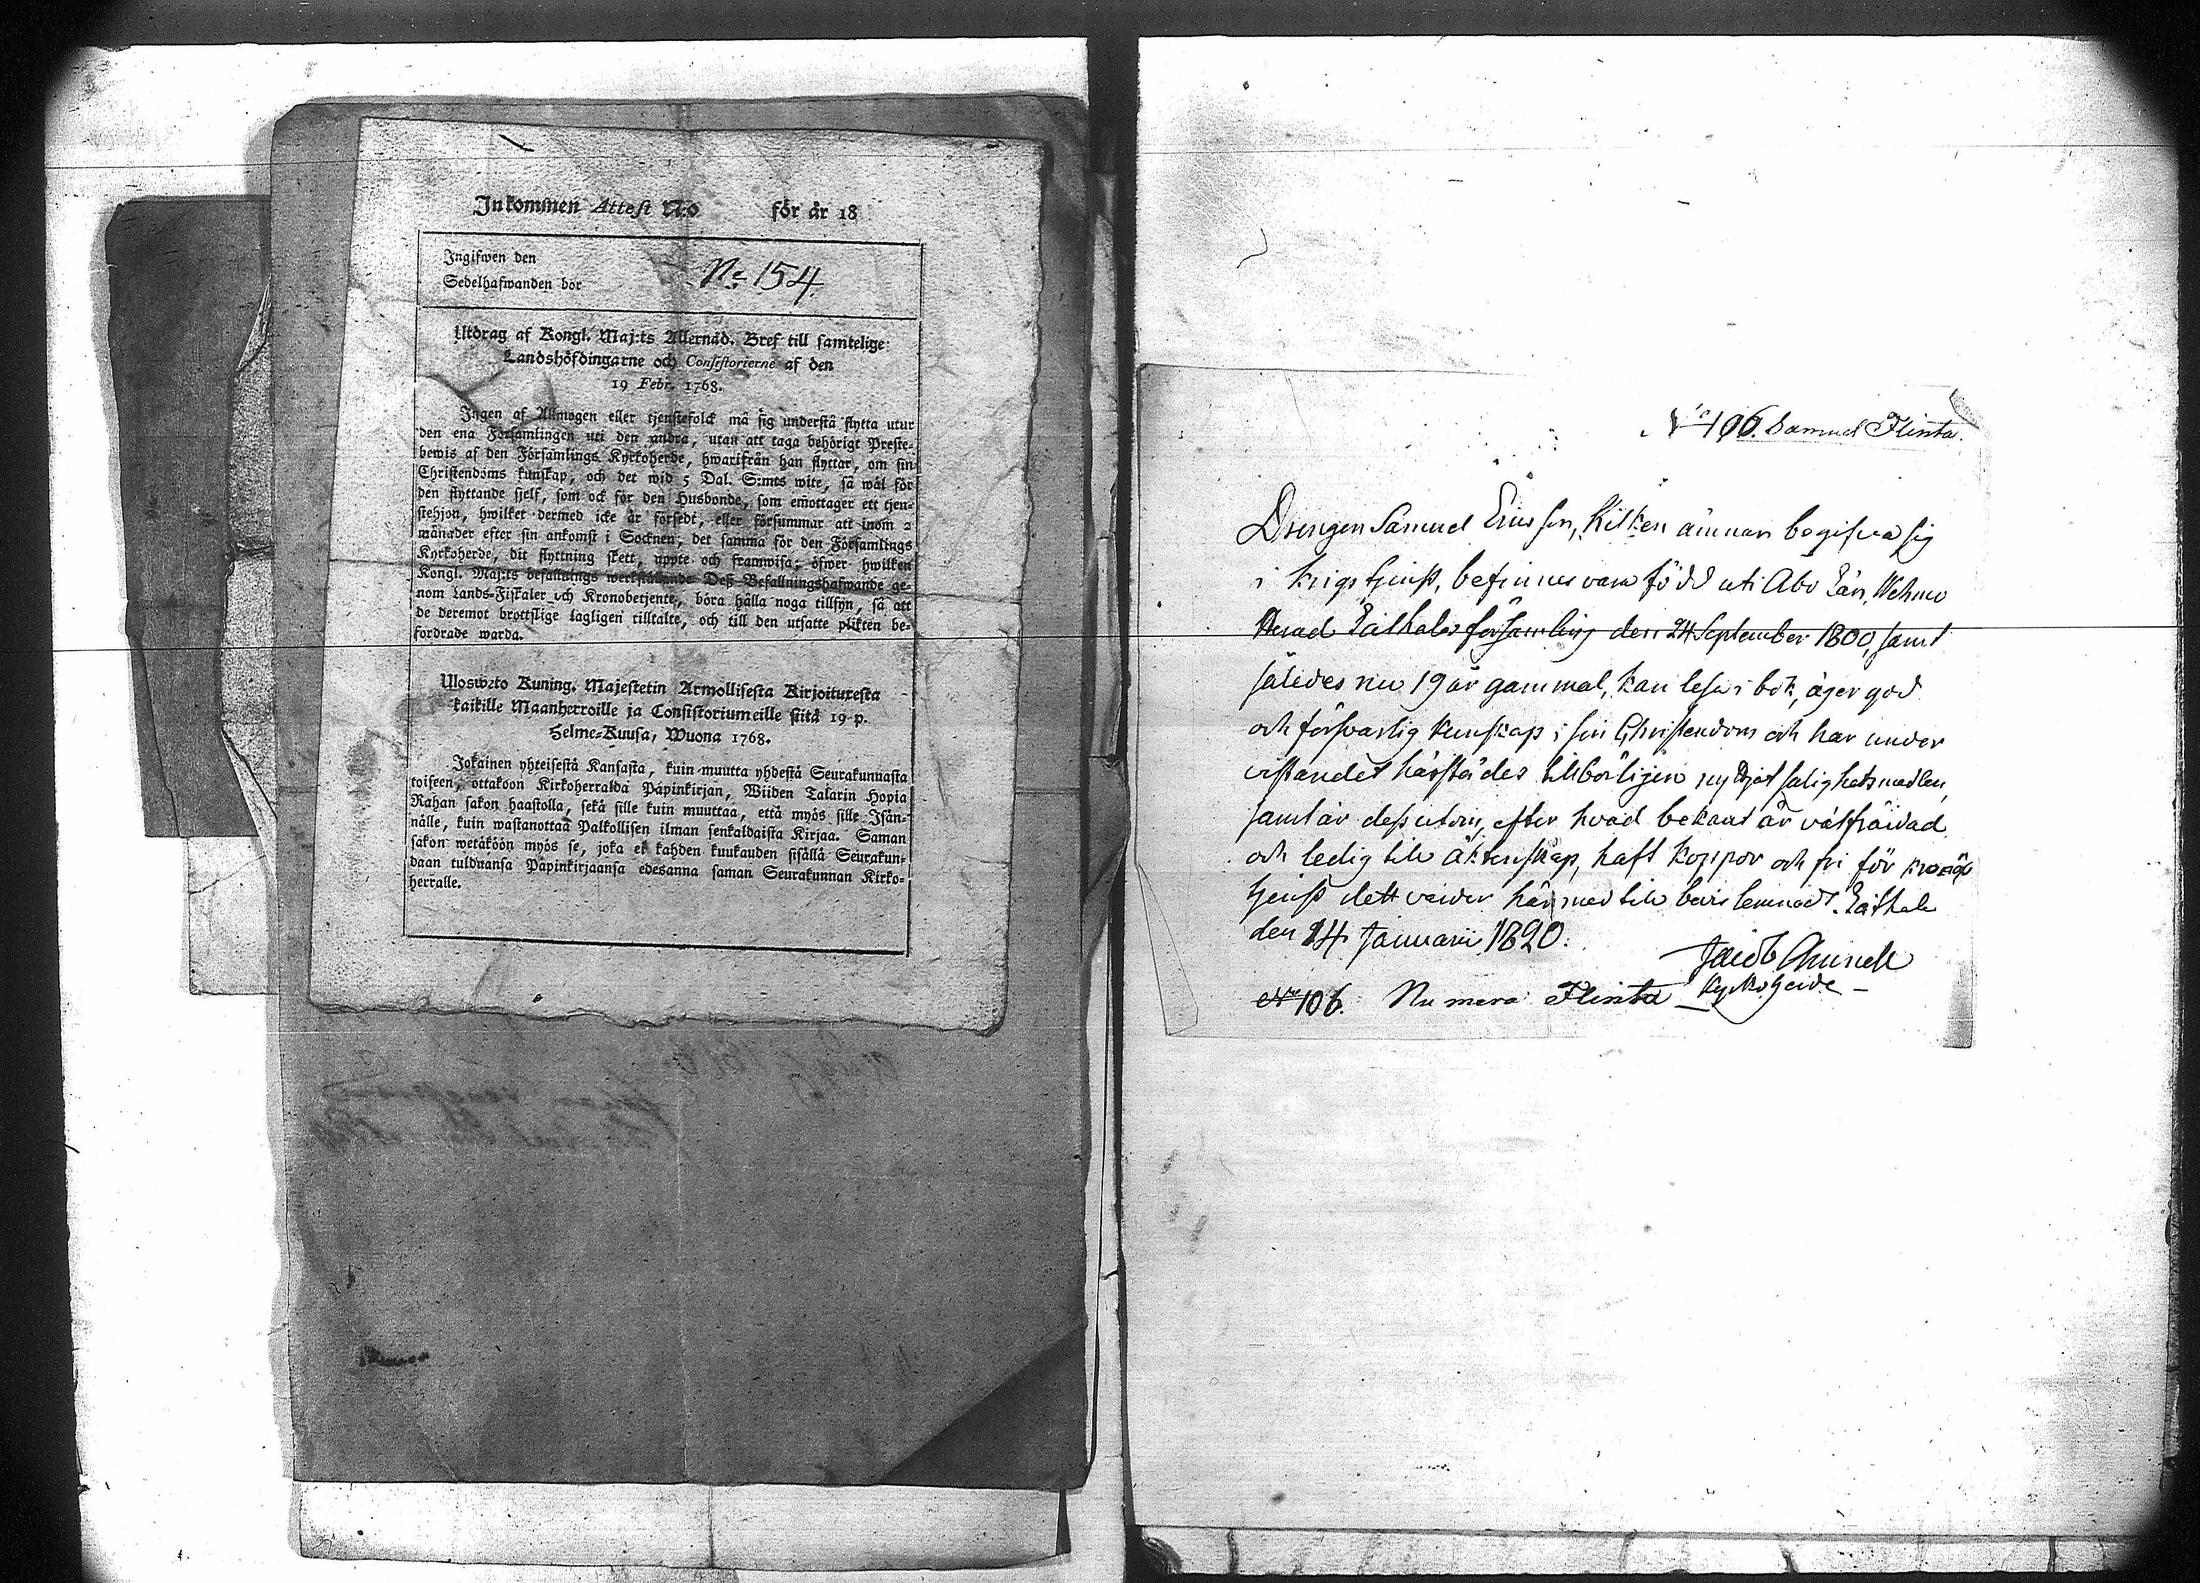 Inkommen Attest No för år 18
Ingifwen den
Sedelhafwanden bor
No 154.
Utdrag af Kongl. Maj:ts Allernåd. Bref till samtelige
Landshöfdingarne och Consistorierne af den
19 Febr. 1768.
Ingen af Allmogen eller tjenstefolck må sig understå flytta utur
den ena Församlingen uti den andra, utan att taga behörigt Preste-
bewis af den Församlings Kyrkoherde, hwarifrån han flyttar, om sin
Christendoms kunskap, och det wid 5 Dal. S:mts wite, så wäl för
den flyttande sjelf, som ock för den Husbonde, som emottager ett tjen-
stehjon, hwilket dermed icke är försedt, eller försummar att inom 2
månader efter sin ankomst i Socknen, det samma för den Församlings
Kyrkoherde, dit flyttning skett, uppte och framwisa; öfwer hwilken
Kongl. Maj:ts befallnings werkställande Deß Befallningshafwande ge-
nom Lands-Fiskaler och Kronobetjente, böra hålla noga tillsyn, så att
de deremot brottslige lagligen tilltalte, och till den utsatte plikten be-
fordrade warda.
Ulosweto Kuning. Majestetin Armollisesta Kirjoituresta
kaikille Maanherroille ja Consistoriumeille siitä 19 p.
Helme-Kuusa, Wuona 1768.
Jokainen yhteisestä Kansasta, kuin muutta yhdestä Seurakunnasta
toiseen, ottakoon Kirkoherralda Päpinkirjan, Wiiden Talarin Hopia
Rahan sakon haastolla, sekä sille kuin muuttaa, että myös sille Isän-
nälle, kuin wastanottaa Palkollisen ilman senkaldaista Kirjaa. Saman
sakon wetäköön myös se, joka ei kahden kuukauden sisällä Seurakun-
daan tulduansa Päpinkirjaansa edesanna saman Seurakunnan Kirko-
herralle.
No 106. Samuel Flinta.
Drengen Samuel Ericsson, Kilken ämnar begifva sig
i krigstjenst, befinnes vara född uti Åbo Län, Wehmo
Härad Låthala församling den 24 September 1800, samt
således nu 19 år gammal, kan läsa i bok, äger god
och försvarlig kunskap i sin Christendom och har under
vistandet härstädes tillbörligen nyttjat salighetsmedlen,
samt är dessutom, efter hvad bekant är välfräjdad
och ledig till äktenskap, haft koppor och fri för krono
tjenst dett varder härmed till bevis lemnadt. Låthala
den 14 Januarii 1820.
Jacob
Kyrkoherde
No 106. Numera Flinta